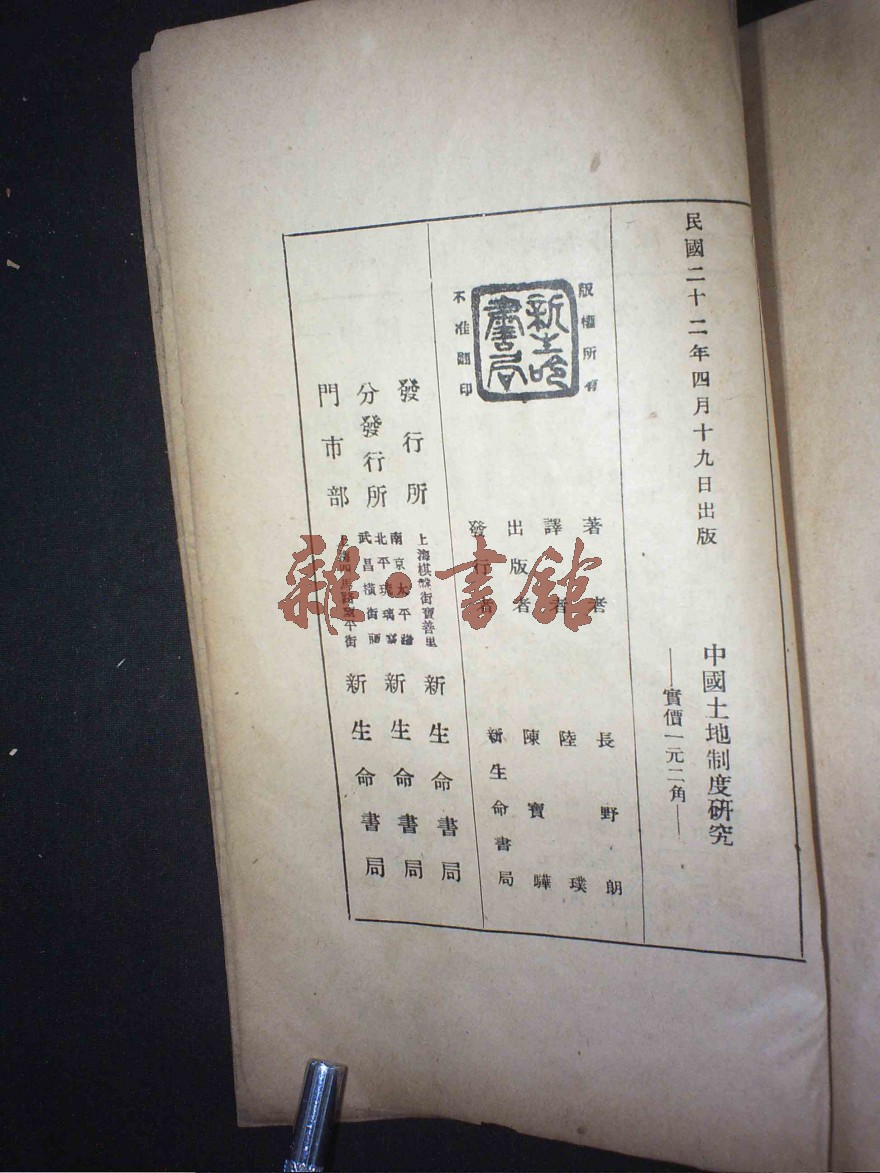 民國二十二年四月十九日出版
中國土地制度研究
——實價一元二角——
版權所有
新生命書局
不准翻印
著者 長野朗
譯者 陸璞
出版者 陳寶驊
發行者 新生命書局
發行所 上海棋盤街寶善里 新生命書局
分發行所 南京太平路 北平琉璃廠 武昌橫街頭 新生命書局
門市部 上海四馬路 街 新生命書局
雜·書館